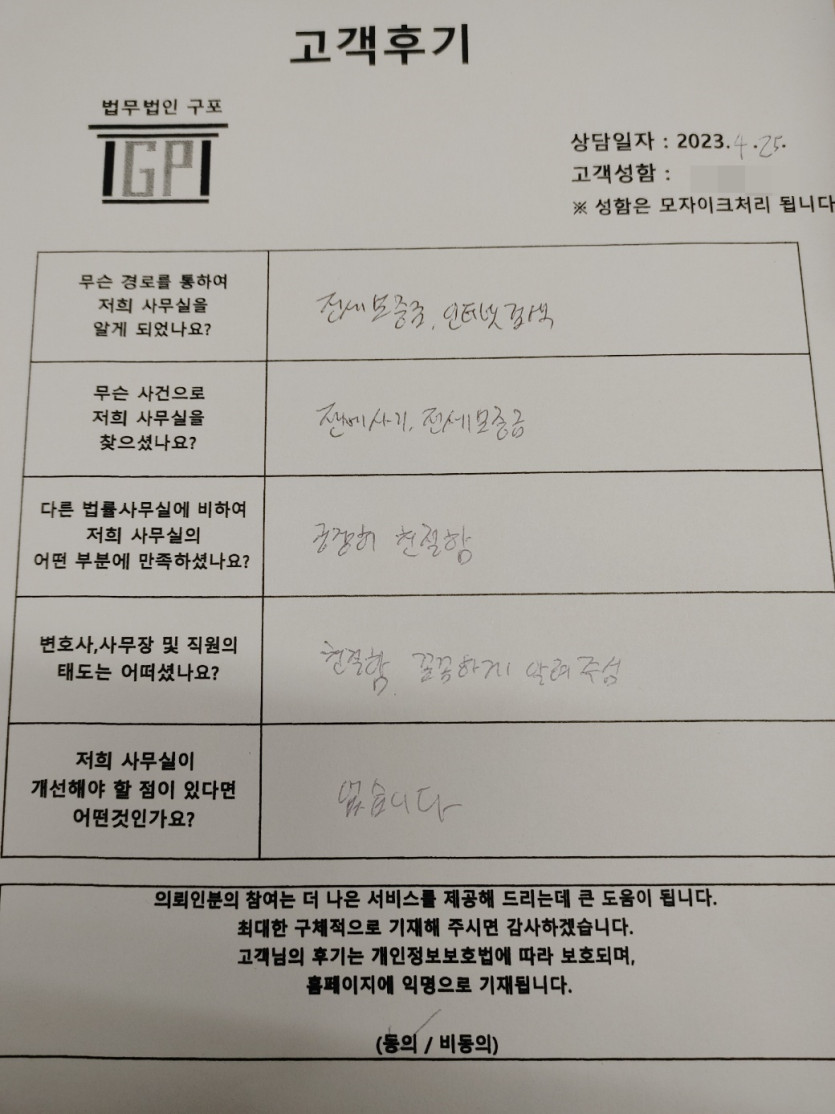 고객후기
법무법인 구포
GP
상담일자 : 2023.4.25.
고객성함 :
※ 성함은 모자이크처리 됩니다
무슨 경로를 통하여
저희 사무실을
알게 되었나요?
전세보증금, 인터넷 검색
무슨 사건으로
저희 사무실을
찾으셨나요?
전세사기, 전세보증금
다른 법률사무실에 비하여
저희 사무실의
어떤 부분에 만족하셨나요?
굉장히 친절함
변호사,사무장 및 직원의
태도는 어떠셨나요?
친절함, 꼼꼼하게 알려주심
저희 사무실이
개선해야 할 점이 있다면
어떤것인가요?
없습니다
의뢰인분의 참여는 더 나은 서비스를 제공해 드리는데 큰 도움이 됩니다.
최대한 구체적으로 기재해 주시면 감사하겠습니다.
고객님의 후기는 개인정보보호법에 따라 보호되며,
홈페이지에 익명으로 기재됩니다.
(동의 / 비동의)